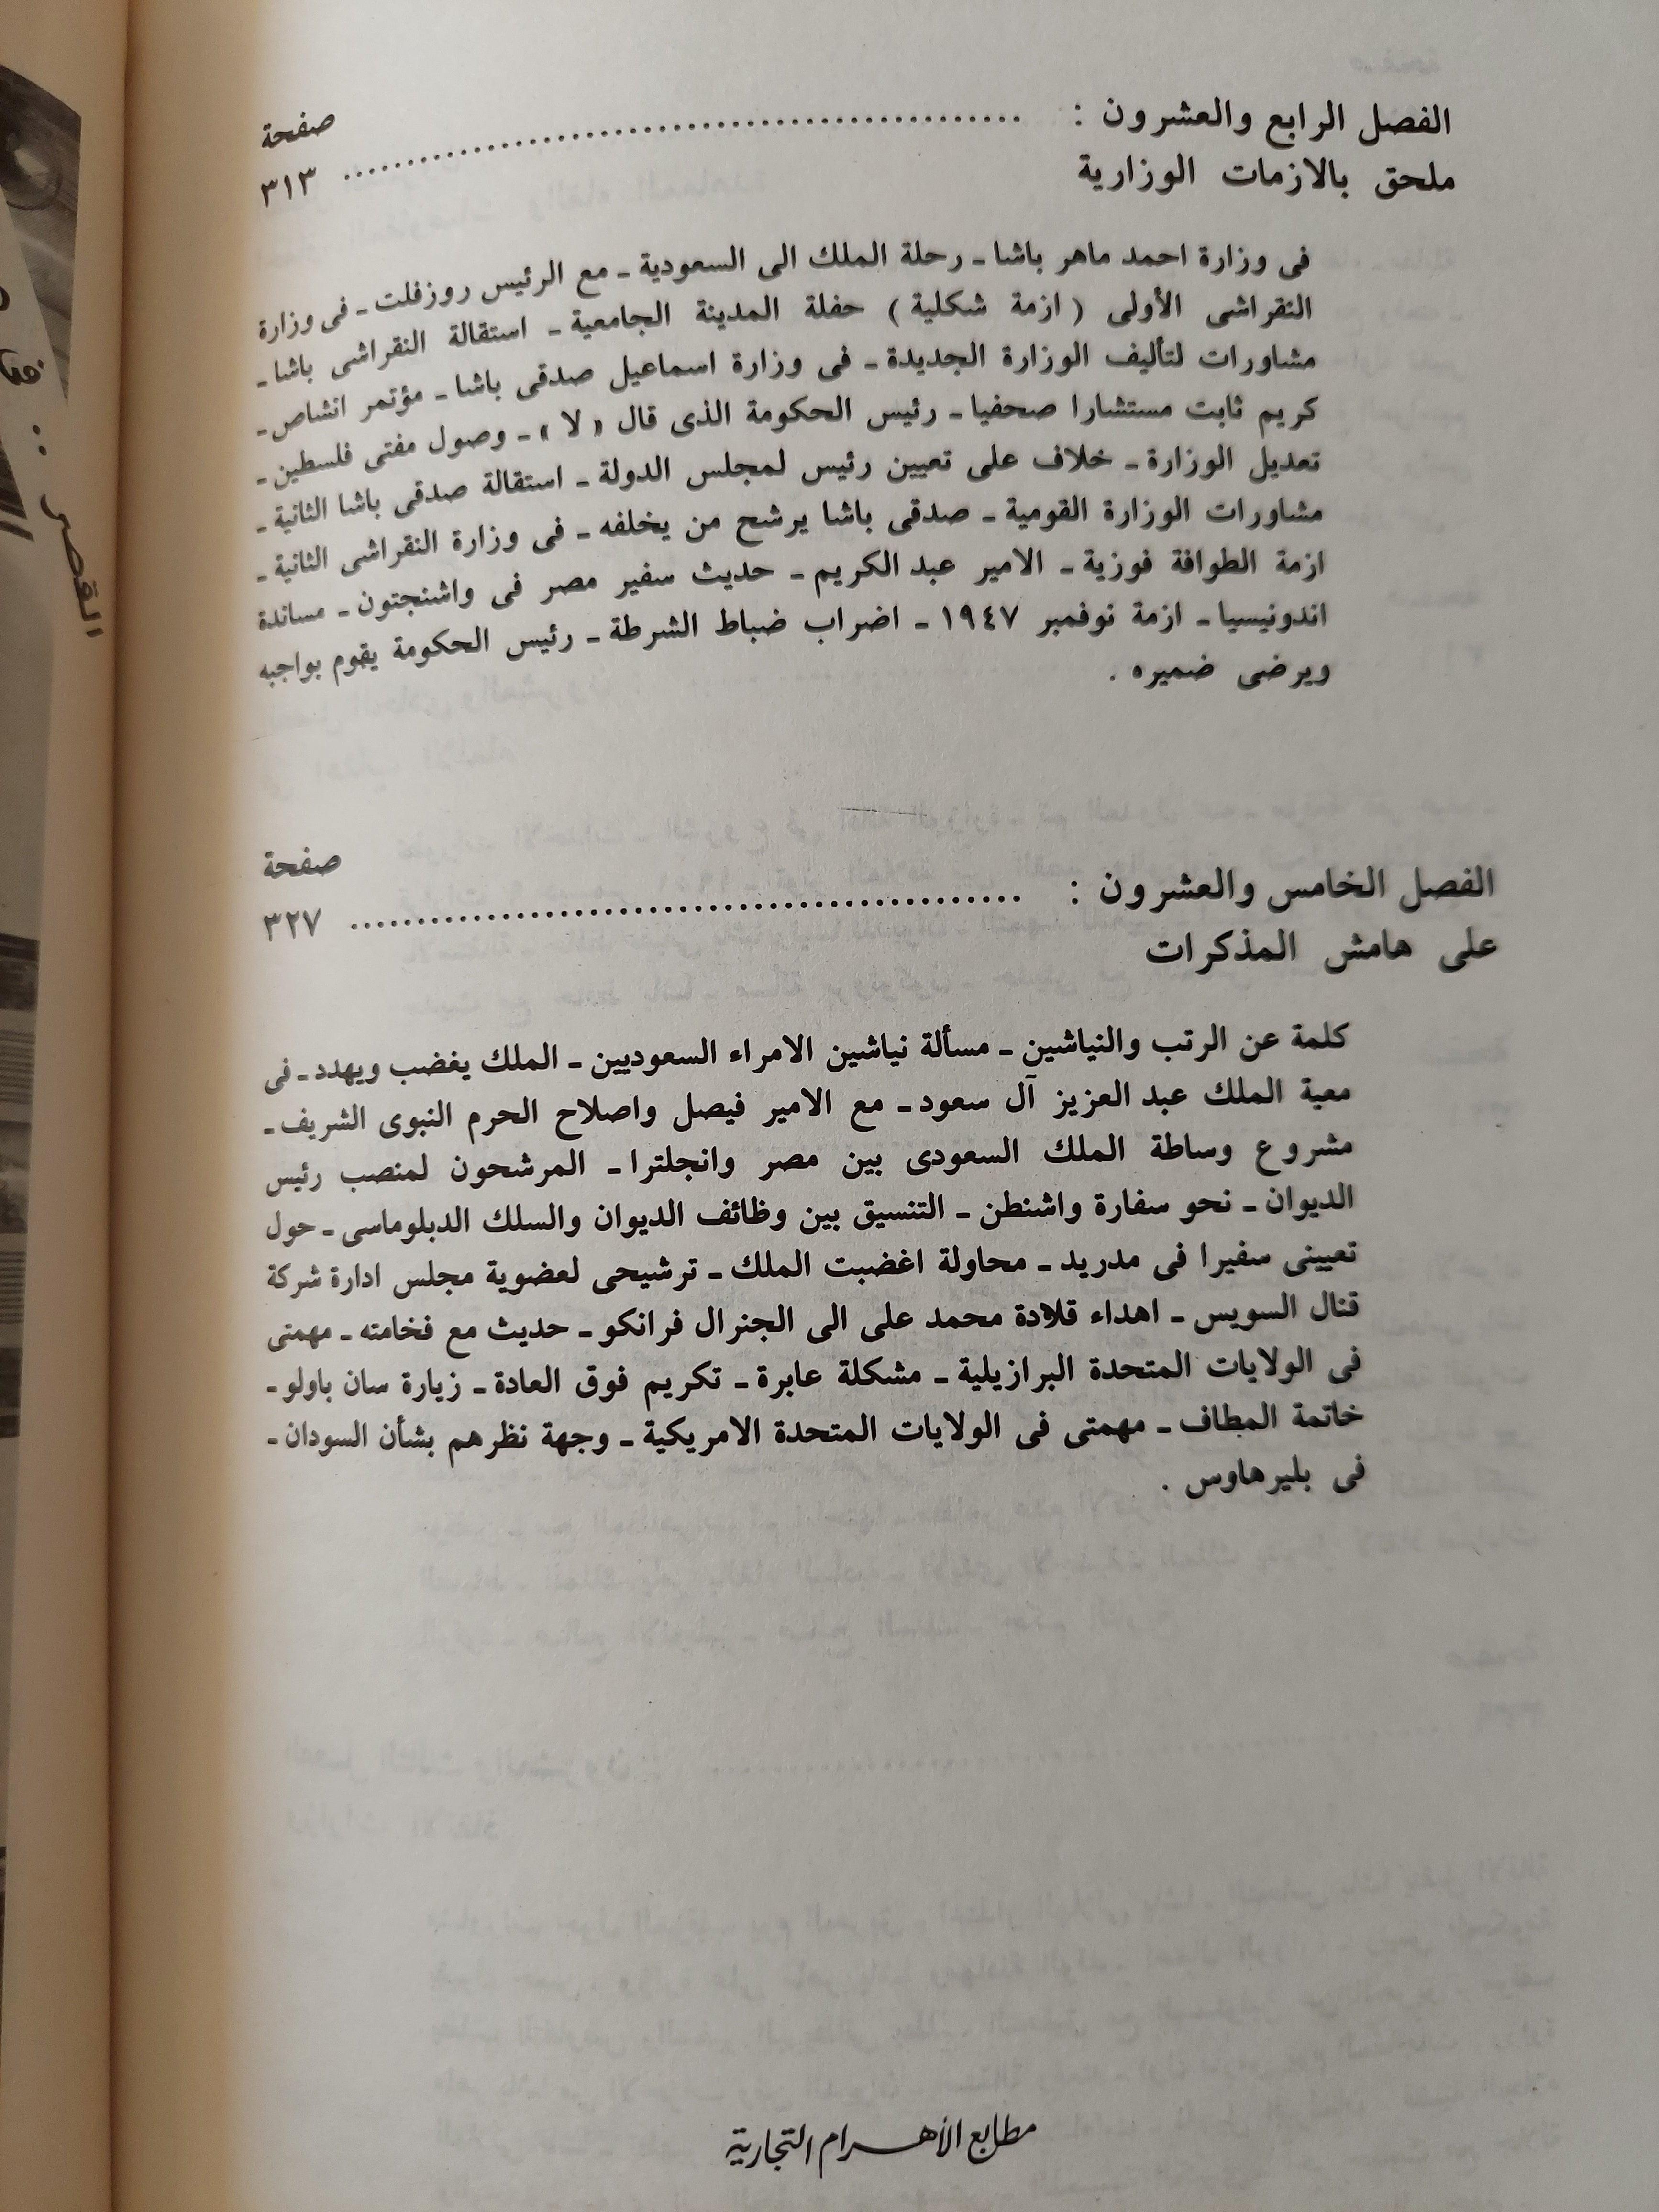 الفصل الرابع والعشرون : ........................ صفحة
ملحق بالازمات الوزارية ........ ٣١٣
فى وزارة احمد ماهر باشا ـ رحلة الملك الى السعودية ـ مع الرئيس روزفلت ـ فى وزارة
النقراشى الأولى ( ازمة شكلية ) حفلة المدينة الجامعية ـ استقالة النقراشى باشا ـ
مشاورات لتأليف الوزارة الجديدة ـ فى وزارة اسماعيل صدقى باشا ـ مؤتمر انشاص ـ
كريم ثابت مستشارا صحفيا ـ رئيس الحكومة الذى قال « لا » ـ وصول مفتى فلسطين ـ
تعديل الوزارة ـ خلاف على تعيين رئيس لمجلس الدولة ـ استقالة صدقى باشا الثانية ـ
مشاورات الوزارة القومية ـ صدقى باشا يرشح من يخلفه ـ فى وزارة النقراشى الثانية ـ
ازمة الطوافة فوزية ـ الامير عبد الكريم ـ حديث سفير مصر فى واشنجتون ـ مساندة
اندونيسيا ـ ازمة نوفمبر ١٩٤٧ ـ اضراب ضباط الشرطة ـ رئيس الحكومة يقوم بواجبه
ويرضى ضميره .
صفحة
الفصل الخامس والعشرون : ........................ ٣٢٧
على هامش المذكرات
كلمة عن الرتب والنياشين ـ مسألة نياشين الامراء السعوديين ـ الملك يغضب ويهدد ـ فى
معية الملك عبد العزيز آل سعود ـ مع الامير فيصل واصلاح الحرم النبوى الشريف ـ
مشروع وساطة الملك السعودى بين مصر وانجلترا ـ المرشحون لمنصب رئيس
الديوان ـ نحو سفارة واشنطن ـ التنسيق بين وظائف الديوان والسلك الدبلوماسى ـ حول
تعيينى سفيرا فى مدريد ـ محاولة اغضبت الملك ـ ترشيحى لعضوية مجلس ادارة شركة
قنال السويس ـ اهداء قلادة محمد على الى الجنرال فرانكو ـ حديث مع فخامته ـ مهمتى
فى الولايات المتحدة البرازيلية ـ مشكلة عابرة ـ تكريم فوق العادة ـ زيارة سان باولو ـ
خاتمة المطاف ـ مهمتى فى الولايات المتحدة الامريكية ـ وجهة نظرهم بشأن السودان ـ
فى بليرهاوس .
مطابع الأهرام التجارية
القصر ..